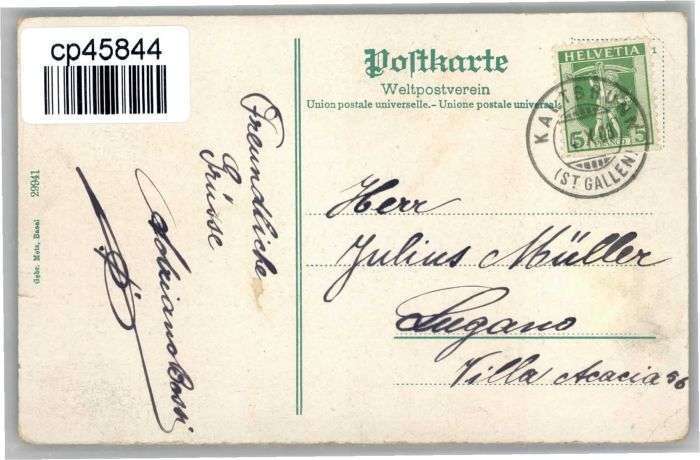 cp45844
Postkarte
Weltpostverein
Union postale universelle.- Unione postale universale
HELVETIA
5 FRANCO 5
(ST GALLEN)
Freundliche
Grüsse
Gebr. Metz, Basel 29941
Herr
Julius Müller
Lugano
Villa Acacia